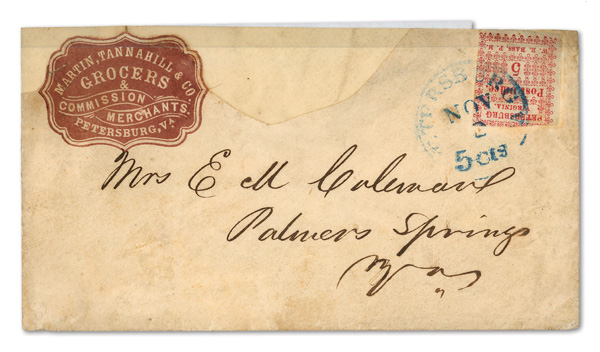 MARTIN, TANNAHILL & CO.
GROCERS
&
COMMISSION
MERCHANTS.
PETERSBURG, VA
PETERSBURG
VIRGINIA.
Post Office
5
W. E. BASS, P. M.
PETERSBURG
NOV
5 cts
Mrs E M Coleman
Palmers Springs